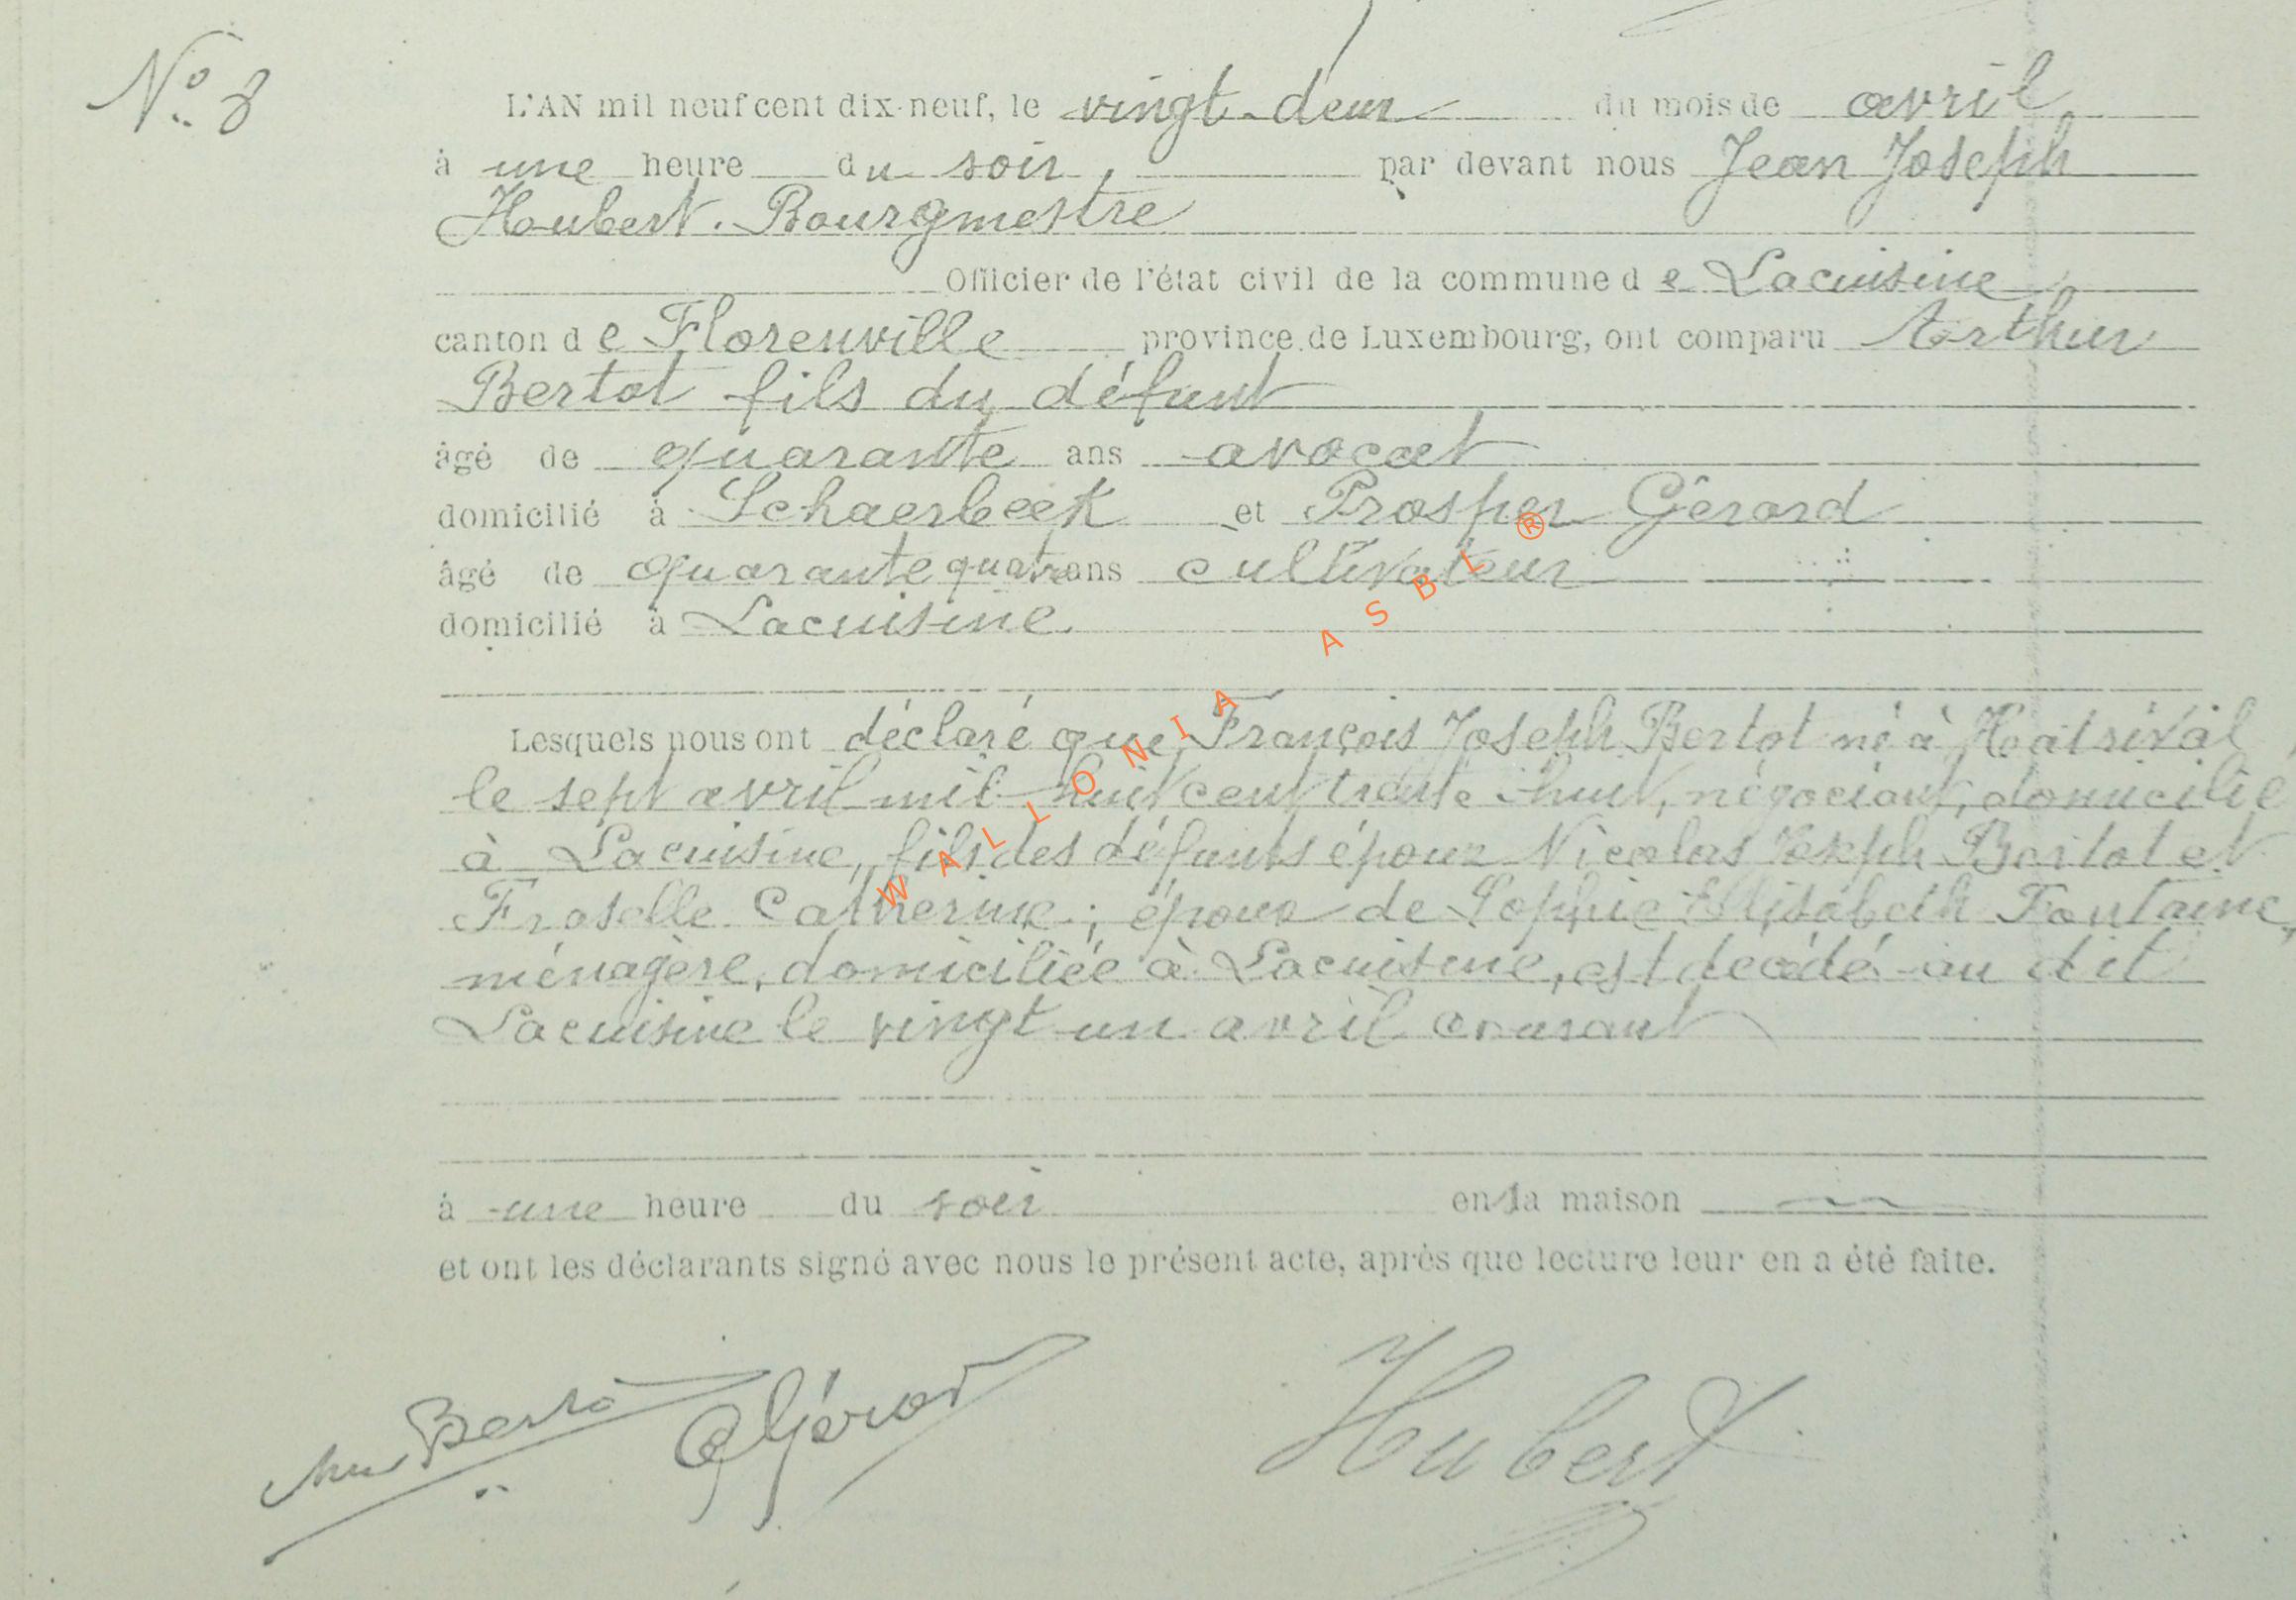 N° 8
L'AN mil neuf cent dix-neuf, le vingt-deux du mois de avril
à une heure du soir, par devant nous Jean Joseph
Houbert. Bourgmestre
Officier de l'état civil de la commune de Lacuisine
canton de Florenville province de Luxembourg, ont comparu Arthur
Bertot fils du défunt
âgé de quarante ans avocat
domicilié à Schaerbeek et Prosper Gérard
âgé de quarante quatre ans cultivateur
domicilié à Lacuisine
Lesquels nous ont déclaré que François Joseph Bertot né à Hatrival
le sept avril mil huit cent trente huit, négociant, domicilié
à Lacuisine, fils des défunts époux Nicolas Joseph Bertot et
Froselle Catherine; époux de Sophie Elisabeth Fontaine,
ménagère, domiciliée à Lacuisine, est décédé au dit
Lacuisine le vingt un avril courant
à une heure du soir en sa maison
et ont les déclarants signé avec nous le présent acte, après que lecture leur en a été faite.
Gérard Hubert
WALLONIA ASBL ®